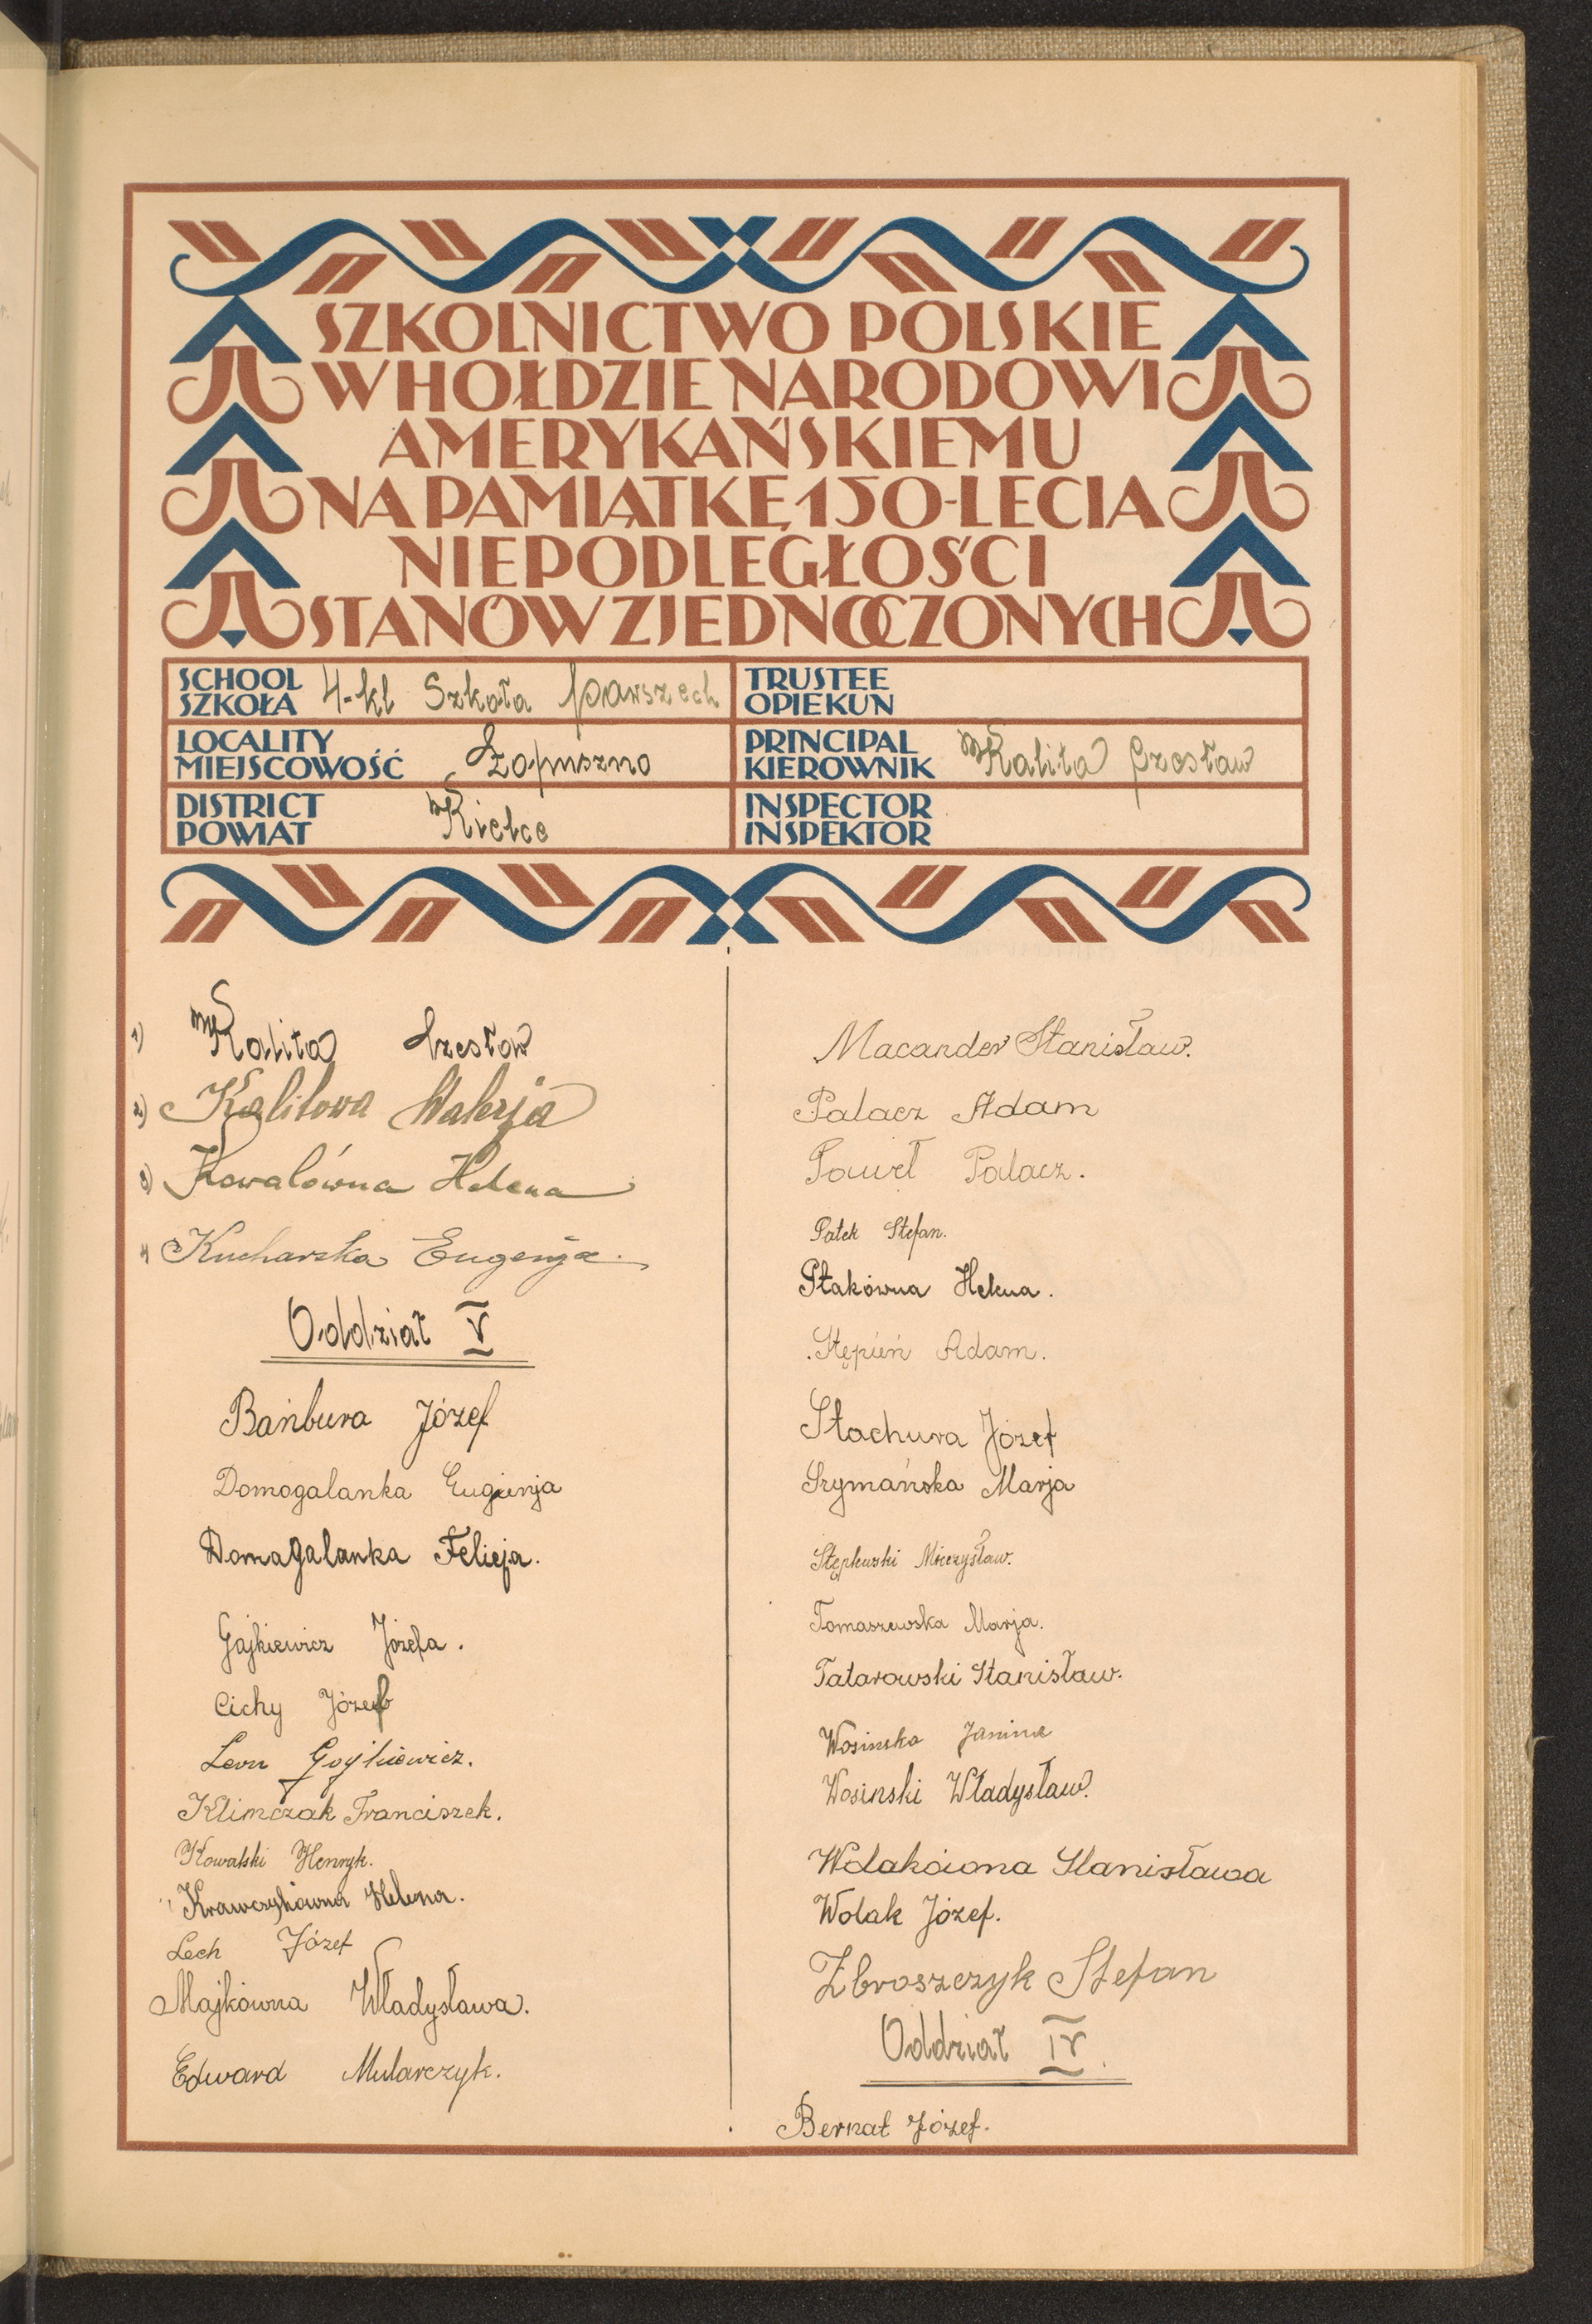 SZKOLNICTWO POLSKIE
W HOŁDZIE NARODOWI
AMERYKAŃSKIEMU
NA PAMIĄTKĘ 150-LECIA
NIEPODLEGŁOŚCI
STANÓW ZJEDNOCZONYCH
SCHOOL
SZKOŁA 4-kl Szkoła powszech
LOCALITY
MIEJSCOWOŚĆ Łopuszno
DISTRICT
POWIAT Kielce
TRUSTEE
OPIEKUN
PRINCIPAL
KIEROWNIK Kalita Czesław
INSPECTOR
INSPEKTOR
1) Kalita Czesław
2) Kalitowa Walerja
3) Kowalówna Helena
4 Kucharska Eugenja.
Oddział V
Bańbura Józef
Domogalanka Eugienja
Domagalanka Felicja.
Gajkiewicz Józefa.
Cichy Józef
Leon Gojkiewicz.
Klimczak Franciszek.
Kowalski Henryk.
Krawczykówna Helena.
Lech Józef
Majkówna Władysława.
Edward Mularczyk.
Macander Stanisław.
Palacz Adam
Paweł Palacz.
Patek Stefan.
Ptakówna Helena.
Stępień Adam.
Stachura Józef
Szymańska Marja
Stępkowski Mieczysław.
Tomaszewska Marja.
Tatarowski Stanisław.
Wosinska Janina
Wosinski Władysław.
Wolakówna Stanisława
Wolak Józef.
Zbroszczyk Stefan
Oddział IV.
Bernat Józef.